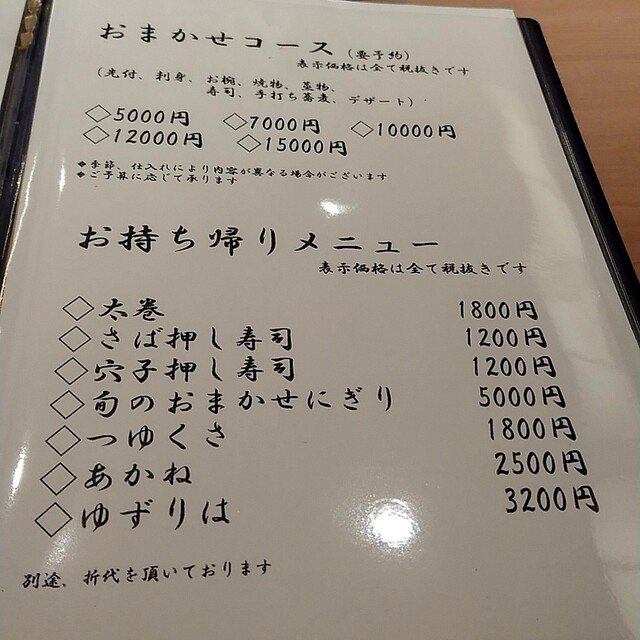 おまかせコース (要予約)
表示価格は全て税抜きです
(先付、刺身、お椀、焼物、蒸物、
寿司、手打ち蕎麦、デザート)
◇5000円 ◇7000円 ◇10000円
◇12000円 ◇15000円
◆季節、仕入れにより内容が異なる場合がございます
◆ご予算に応じて承ります
お持ち帰りメニュー
表示価格は全て税抜きです
◇太巻 1800円
◇さば押し寿司 1200円
◇穴子押し寿司 1200円
◇旬のおまかせにぎり 5000円
◇つゆくさ 1800円
◇あかね 2500円
◇ゆずりは 3200円
別途、折代を頂いております